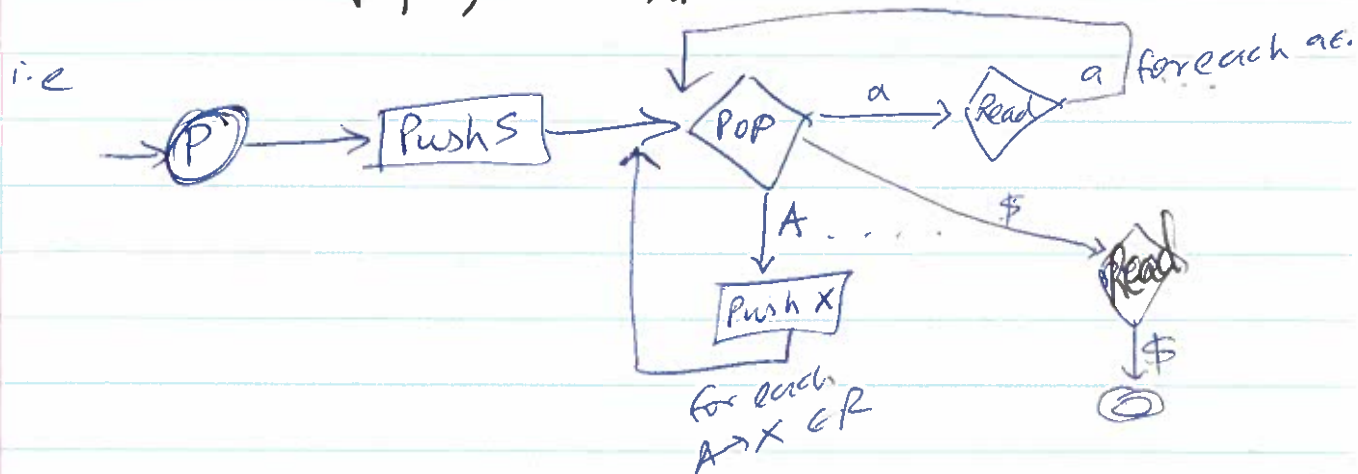 i.e
P
Push S
POP
a
Read
a
for each a ∈.
A . . . . .
$
Push X
Read
$
for each
A → X ∈ R